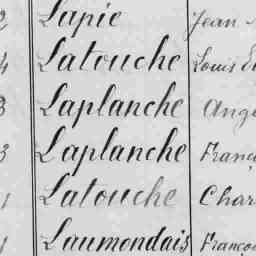 2 Lapie Jean
4 Latouche Louis
3 Laplanche Ang
3 Laplanche Franç
1 Latouche Char
1 Laumondais Franço